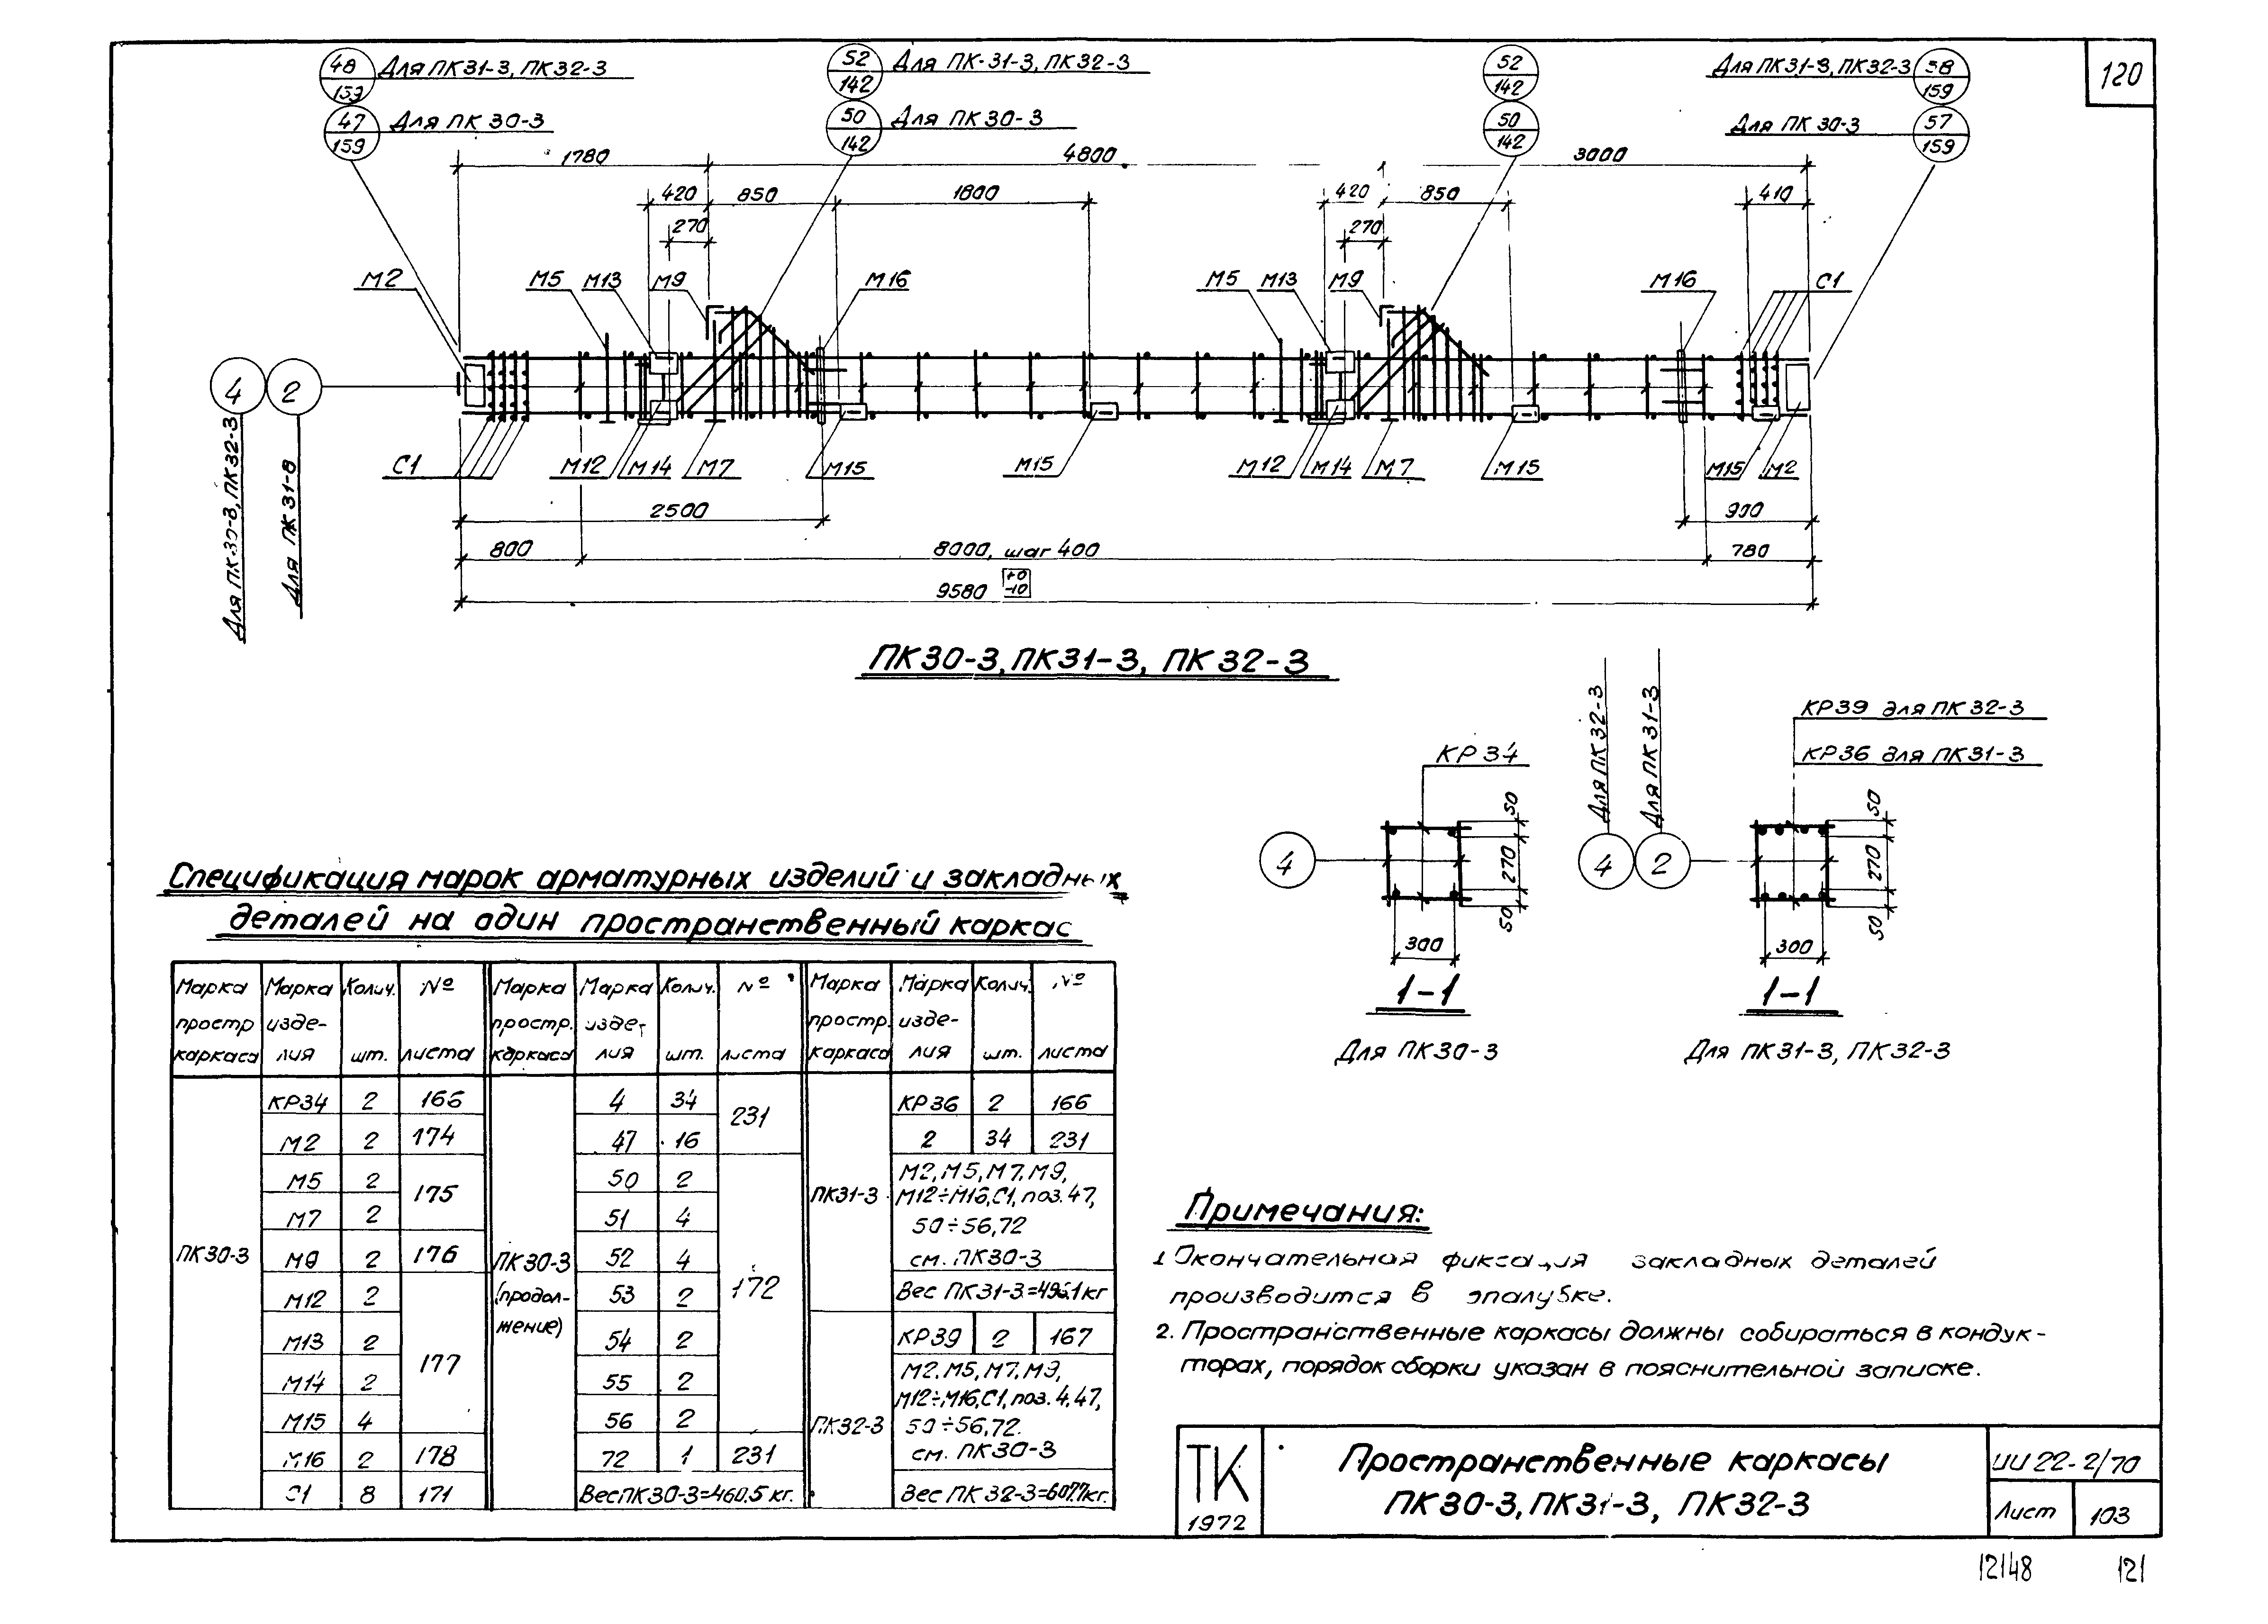 120
48
159
Для ПК31-3, ПК32-3
47
159
Для ПК 30-3
52
142
Для ПК-31-3, ПК32-3
50
142
Для ПК30-3
52
142
50
142
Для ПК31-3, ПК32-3
58
159
Для ПК 30-3
57
159
1780
4800
3000
420
850
1800
420
850
410
270
270
М2
М5
М13
М9
М16
М5
М13
М9
М16
С1
4
2
Для ПК30-3, ПК32-3
Для ПК31-3
С1
М12
М14
М7
М15
М15
М12
М14
М7
М15
М15
М2
2500
900
800
8000, шаг 400
780
9580 +0 -10
ПК30-3, ПК31-3, ПК32-3
КР34
4
50
270
50
300
1-1
Для ПК30-3
Для ПК32-3
Для ПК31-3
КР39 для ПК32-3
КР36 для ПК31-3
4
2
50
270
50
300
1-1
Для ПК31-3, ПК32-3
Спецификация марок арматурных изделий и закладных
деталей на один пространственный каркас
Марка простр каркаса | Марка изде-лия | Колич. шт. | № листа | Марка простр. каркаса | Марка изде-лия | Колич. шт. | № листа | Марка простр. каркаса | Марка изде-лия | Колич. шт. | № листа
ПК30-3
КР34 2 166
М2 2 174
М5 2 175
М7 2
М9 2 176
М12 2 177
М13 2
М14 2
М15 4
М16 2 178
С1 8 171
ПК30-3
(продол-
жение)
4 34 231
47 16
50 2 172
51 4
52 4
53 2
54 2
55 2
56 2
72 1 231
Вес ПК30-3=460.5 кг.
ПК31-3
КР36 2 166
2 34 231
М2, М5, М7, М9,
М12÷М16, С1, поз. 47,
50÷56, 72
см. ПК30-3
Вес ПК31-3=496.1 кг
ПК32-3
КР39 2 167
М2, М5, М7, М9,
М12÷М16, С1, поз. 4, 47,
50÷56, 72.
см. ПК30-3
Вес ПК32-3=607.7 кг.
Примечания:
1 Окончательная фиксация закладных деталей
производится в опалубке.
2. Пространственные каркасы должны собираться в кондук-
торах, порядок сборки указан в пояснительной записке.
ТК
1972
Пространственные каркасы
ПК30-3, ПК31-3, ПК32-3
ИИ 22-2/70
Лист 103
12148
121